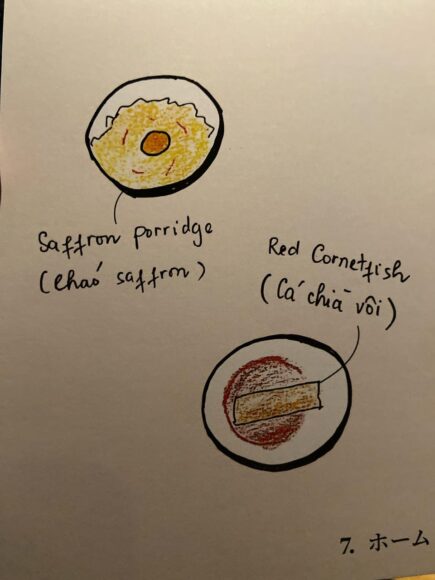 Saffron porridge
(Cháo saffron)
Red Cornetfish
(Cá chìa vôi)
7. ホーム